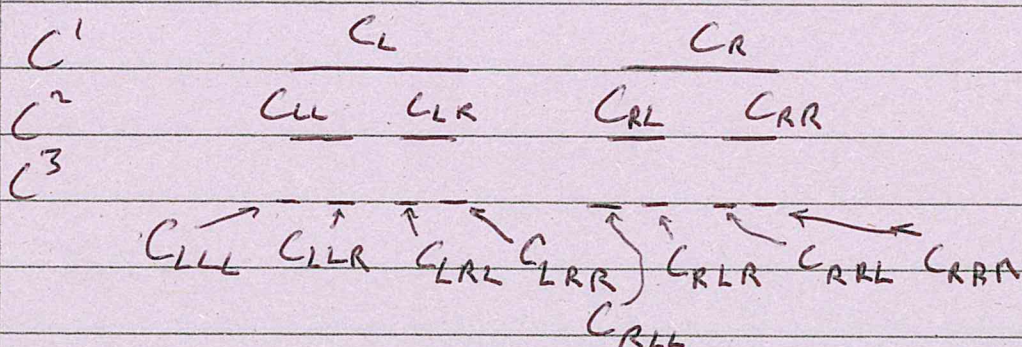 C¹ C_L C_R
C² C_LL C_LR C_RL C_RR
C³
C_LLL C_LLR C_LRL C_LRR C_RLR C_RRL C_RRR
C_RLL